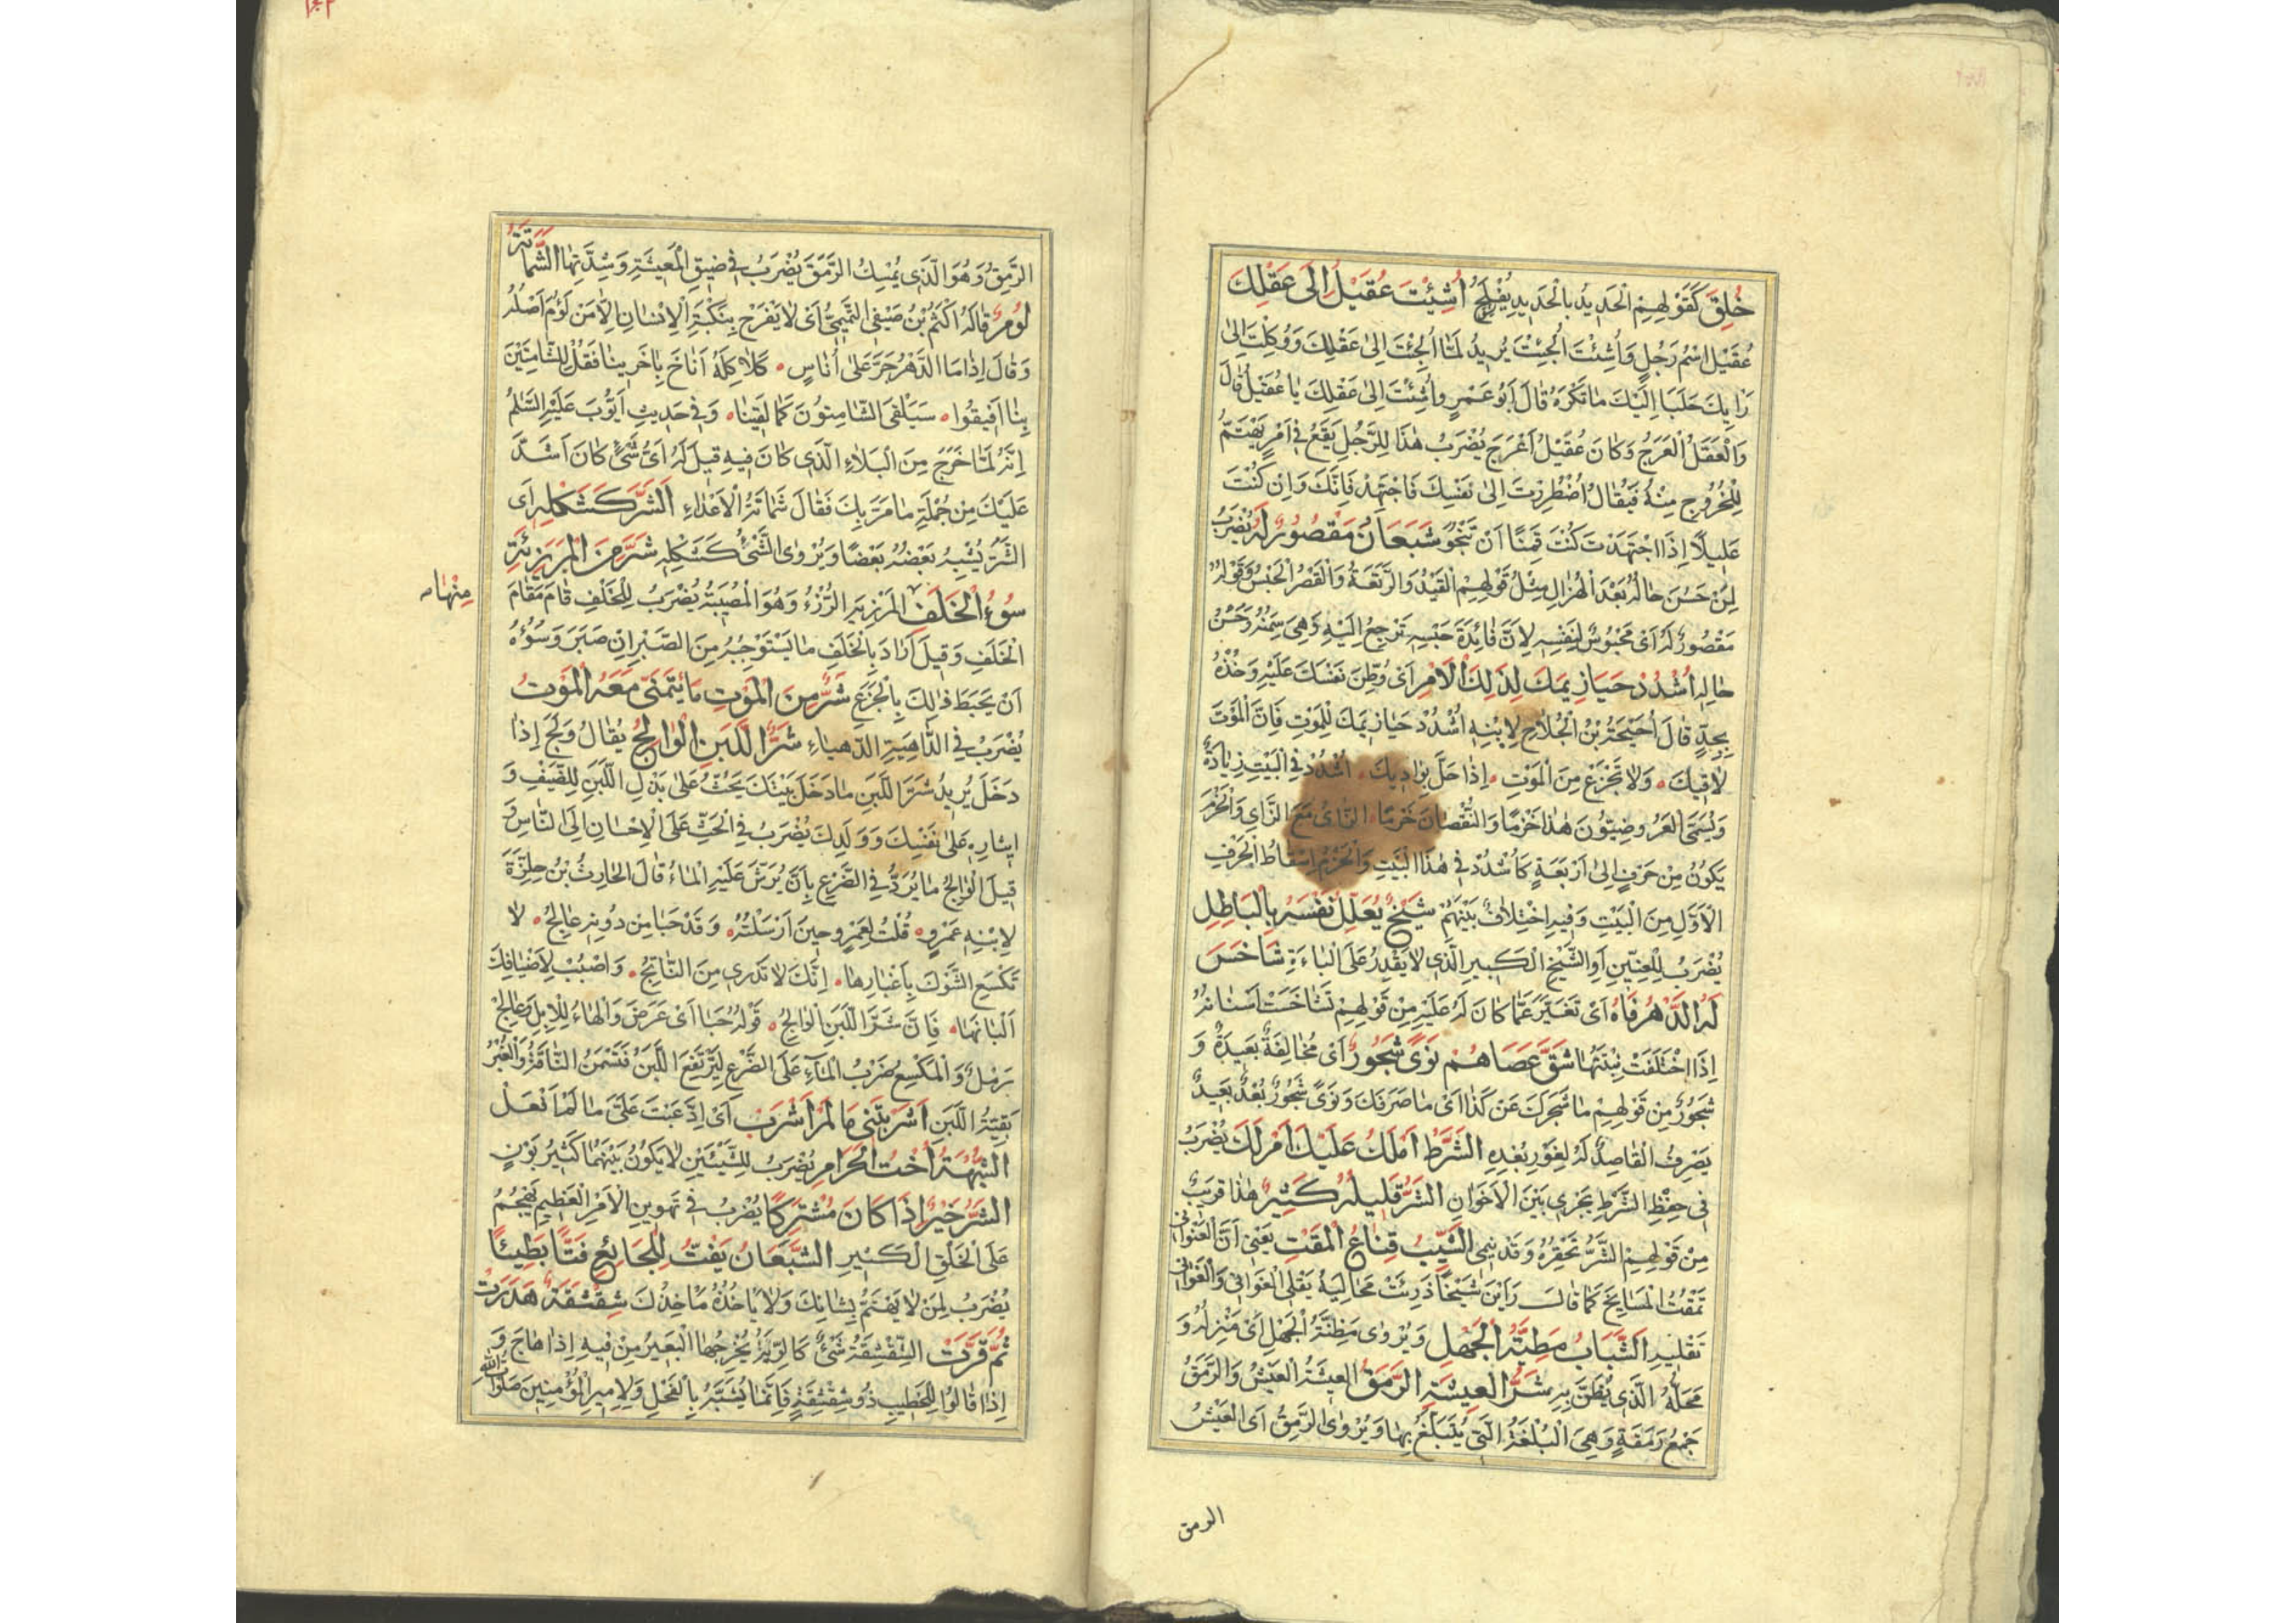 خُلِقَ كَقَوْلِهِمْ الْحَدِيدُ بِالْحَدِيدِ يُفْلَحُ أُشِئْتَ عُقَيْلُ إِلَى عَقْلِكَ
عُقَيْلٌ اسْمُ رَجُلٍ وَأُشِئْتَ أُلْجِئْتَ يُرِيدُ لَمَّا أُلْجِئْتَ إِلَى عَقْلِكَ وَوُكِلْتَ إِلَى
رَأْيِكَ جَلَبَا إِلَيْكَ مَا تَكْرَهُ قَالَ أَبُو عَمْرٍو أُشِئْتَ إِلَى عَقْلِكَ يَا عُقَيْلُ قَالَ
وَالْعَقَلُ الْعَرَجُ وَكَانَ عُقَيْلٌ أَعْرَجَ يُضْرَبُ هٰذَا لِلرَّجُلِ يَقَعُ فِي أَمْرٍ يَهْتَمُّ
لِلْخُرُوجِ مِنْهُ فَيُقَالُ اُضْطُرِرْتَ إِلَى نَفْسِكَ فَاجْتَهِدْ فَإِنَّكَ وَإِنْ كُنْتَ
عَلِيلًا إِذَا اجْتَهَدْتَ كُنْتَ قَمِنًا أَنْ تَنْجُوَ شَبْعَانُ مَقْصُورٌ لَهُ يُضْرَبُ
لِمَنْ حَسُنَ حَالُهُ بَعْدَ الْهُزَالِ مِثْلُ قَوْلِهِمْ الْقَيْدُ وَالرَّتَعَةُ وَالْقَصْرُ الْحَبْسُ وَقَوْلُهُ
مَقْصُورٌ لَهُ أَيْ مَحْبُوسٌ لِنَفْسِهِ لِأَنَّ فَائِدَةَ حَبْسِهِ تَرْجِعُ إِلَيْهِ وَهِيَ سِمَنُهُ وَحُسْنُ
حَالِهِ اُشْدُدْ حَيَازِيمَكَ لِذٰلِكَ الْأَمْرِ أَيْ وَطِّنْ نَفْسَكَ عَلَيْهِ وَخُذْهُ
بِجِدٍّ قَالَ أُحَيْحَةُ بْنُ الْجُلَاحِ لِابْنِهِ اُشْدُدْ حَيَازِيمَكَ لِلْمَوْتِ فَإِنَّ الْمَوْتَ
لَاقِيكَ وَلَا تَجْزَعْ مِنَ الْمَوْتِ إِذَا حَلَّ بِوَادِيكَ اُشْدُدْ فِي الْبَيْتِ زِيَادَةٌ
وَيُسَمِّي الْعَرُوضِيُّونَ هٰذَا خَزْمًا وَالنُّقْصَانَ خَرْمًا الزَّايُ مَعَ الزَّايِ وَالْخَزْمُ
يَكُونُ مِنْ حَرْفٍ إِلَى أَرْبَعَةٍ كَاُشْدُدْ فِي هٰذَا الْبَيْتِ وَالْخَرْمُ إِسْقَاطُ الْحَرْفِ
الْأَوَّلِ مِنَ الْبَيْتِ وَفِيهِ اخْتِلَافٌ بَيْنَهُمْ شَيْخٌ يُعَلِّلُ نَفْسَهُ بِالْبَاطِلِ
يُضْرَبُ لِلْعِنِّينِ أَوِ الشَّيْخِ الْكَبِيرِ الَّذِي لَا يَقْدِرُ عَلَى الْبَاءَةِ شَاخَسَ
لَهُ الدَّهْرُ فَاهُ أَيْ تَغَيَّرَ عَمَّا كَانَ لَهُ عَلَيْهِ مِنْ قَوْلِهِمْ تَشَاخَسَتْ أَسْنَانُهُ
إِذَا اخْتَلَفَتْ نِبْتَتُهَا شَقَّ عَصَاهُمْ نَوًى شَجُورٌ أَيْ مُخَالِفَةٌ بَعِيدَةٌ وَ
شَجُورٌ مِنْ قَوْلِهِمْ مَا شَجَرَكَ عَنْ كَذَا أَيْ مَا صَرَفَكَ وَنَوًى شَجُورٌ بُعْدٌ بَعِيدٌ
يَصْرِفُ الْقَاصِدَ لَهُ لِغَوْرِ بُعْدِهِ الشَّرْطُ أَمْلَكُ عَلَيْكَ أَمْ لَكَ يُضْرَبُ
فِي حِفْظِ الشَّرْطِ يَجْرِي بَيْنَ الْإِخْوَانِ الشَّرُّ قَلِيلُهُ كَثِيرٌ هٰذَا قَرِيبٌ
مِنْ قَوْلِهِمْ الشَّرُّ تَحْقِرُهُ وَقَدْ يَنْمِي الشَّيْبُ قِنَاعُ الْمَقْتِ يَعْنِي أَنَّ الْغَوَانِي
تَمْقُتُ الْمَشَايِخَ كَمَا قَالَ رَأَيْنَ شَيْخًا ذَرِئَتْ مَجَالِيهُ يَقْلِي الْغَوَانِي وَالْغَوَانِي
تَقْلِيهِ الشَّبَابُ مَطِيَّةُ الْجَهْلِ وَيُرْوَى مَظِنَّةُ الْجَهْلِ أَيْ مَنْزِلُهُ وَ
مَحَلُّهُ الَّذِي يُظَنُّ بِهِ شَرُّ الْعِيشَةِ الرَّمَقُ الْعِيشَةُ الْعَيْشُ وَالرَّمَقُ
جَمْعُ رَمَقَةٍ وَهِيَ الْبُلْغَةُ الَّتِي يُتَبَلَّغُ بِهَا وَيُرْوَى الرَّمِقُ أَيِ الْعَيْشُ
الرمق
الرَّمِقُ وَهُوَ الَّذِي يُمْسِكُ الرَّمَقَ يُضْرَبُ فِي ضِيقِ الْمَعِيشَةِ وَشِدَّتِهَا الشَّمَاتَةُ
لُؤْمٌ قَالَهُ أَكْثَمُ بْنُ صَيْفِيٍّ التَّمِيمِيُّ أَيْ لَا يَفْرَحُ بِنَكْبَةِ الْإِنْسَانِ إِلَّا مَنْ لَؤُمَ أَصْلُهُ
وَقَالَ إِذَا مَا الدَّهْرُ جَرَّ عَلَى أُنَاسٍ كَلَاكِلَهُ أَنَاخَ بِآخَرِينَا فَقُلْ لِلشَّامِتِينَ
بِنَا أَفِيقُوا سَيَلْقَى الشَّامِتُونَ كَمَا لَقِينَا وَفِي حَدِيثِ أَيُّوبَ عَلَيْهِ السَّلَمُ
إِنَّهُ لَمَّا خَرَجَ مِنَ الْبَلَاءِ الَّذِي كَانَ فِيهِ قِيلَ لَهُ أَيُّ شَيْءٍ كَانَ أَشَدَّ
عَلَيْكَ مِنْ جُمْلَةِ مَا مَرَّ بِكَ فَقَالَ شَمَاتَةُ الْأَعْدَاءِ الشَّرُّ كَشَكْلِهِ أَيِ
الشَّرُّ يُشْبِهُ بَعْضُهُ بَعْضًا وَيُرْوَى الشَّيْءُ كَشَكْلِهِ شَرٌّ مِنَ الْمَرْزِئَةِ
سُوءُ الْخَلَفِ الْمَرْزِيَةِ الرُّزْءُ وَهُوَ الْمُصِيبَةُ يُضْرَبُ لِلْخَلَفِ قَامَ مَقَامَ
مِنْهَا
الْخَلَفِ وَقِيلَ أَرَادَ بِالْخَلَفِ مَا يَسْتَوْجِبُهُ مِنَ الصَّبْرِ إِنْ صَبَرَ وَسُوْءُهُ
أَنْ يَحْبَطَ ذٰلِكَ بِالْجَزَعِ شَرٌّ مِنَ الْمَوْتِ مَا يُتَمَنَّى مَعَهُ الْمَوْتُ
يُضْرَبُ فِي الدَّاهِيَةِ الدَّهْيَاءِ شَرُّ اللَّبَنِ الْوَالِجُ يُقَالُ وَلَجَ إِذَا
دَخَلَ يُرِيدُ شَرُّ اللَّبَنِ مَا دَخَلَ بَيْتَكَ يَحُثُّ عَلَى بَذْلِ اللَّبَنِ لِلضَّيْفِ وَ
إِيثَارِهِ عَلَى نَفْسِكَ وَوَلَدِكَ يُضْرَبُ فِي الْحَثِّ عَلَى الْإِحْسَانِ إِلَى النَّاسِ وَ
قِيلَ الْوَالِجُ مَا يُرَدُّ فِي الضَّرْعِ بِأَنْ يُرَشَّ عَلَيْهِ الْمَاءُ قَالَ الْحَارِثُ بْنُ حِلِّزَةَ
لِابْنِهِ عَمْرٍو قُلْتُ لِعَمْرٍو حِينَ أَرْسَلْتُهُ وَقَدْ حَبَا مِنْ دُونِهِ عَالِجُ لَا
تَكْسَعِ الشَّوْلَ بِأَغْبَارِهَا إِنَّكَ لَا تَدْرِي مَنِ النَّاتِجُ وَاصْبُبْ لِأَضْيَافِكَ
أَلْبَانَهَا فَإِنَّ شَرَّ اللَّبَنِ الْوَالِجُ قَوْلُهُ حَبَا أَيْ عَرَضَ وَالْهَاءُ لِلْإِبِلِ وَعَالِجٌ
رَمْلٌ وَالْكَسْعُ ضَرْبُ الْمَاءِ عَلَى الضَّرْعِ لِيَرْتَفِعَ اللَّبَنُ فَتَسْمَنُ النَّاقَةُ وَالْغُبْرُ
بَقِيَّةُ اللَّبَنِ أَشْرَبْتَنِي مَا لَمْ أَشْرَبْ أَيْ ادَّعَيْتَ عَلَيَّ مَا لَمْ أَفْعَلْ
الشُّبْهَةُ أُخْتُ الْحَرَامِ يُضْرَبُ لِلشَّيْئَيْنِ لَا يَكُونُ بَيْنَهُمَا كَثِيرُ بَوْنٍ
الشَّرُّ خَيْرٌ إِذَا كَانَ مُشْتَرَكًا يُضْرَبُ فِي تَهْوِينِ الْأَمْرِ الْعَظِيمِ يَهْجُمُ
عَلَى الْخَلْقِ الْكَبِيرِ الشَّبْعَانُ يَفُتُّ لِلْجَائِعِ فَتًّا بَطِيئًا
يُضْرَبُ لِمَنْ لَا يَهْتَمُّ بِشَانِكَ وَلَا يَاخُذُهُ مَا خَذَكَ شِقْشِقَةٌ هَدَرَتْ
ثُمَّ قَرَّتْ الشِّقْشِقَةُ شَيْءٌ كَالرِّيَةِ يُخْرِجُهَا الْبَعِيرُ مِنْ فِيهِ إِذَا هَاجَ وَ
إِذَا قَالُوا لِلْخَطِيبِ ذُو شِقْشِقَةٍ فَإِنَّمَا يُشَبَّهُ بِالْفَحْلِ وَلِأَمِيرِ الْمُؤْمِنِينَ صَلَوَاتُ اللهِ